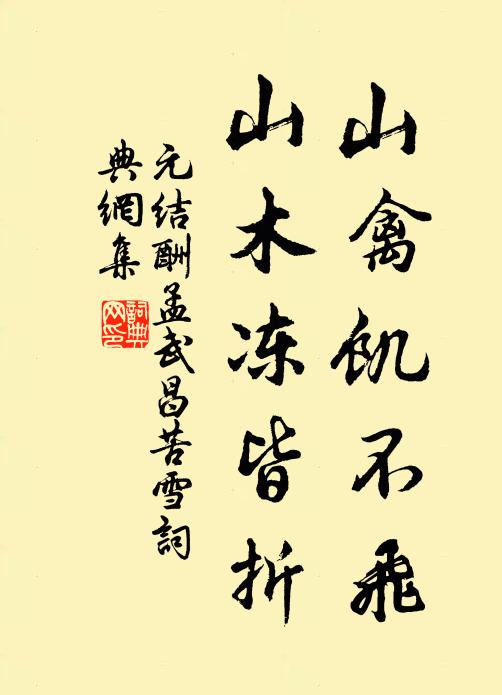 山禽饥不飛
山木冻皆折
元结酬孟武昌苦雪詞
典網集
詞典網印